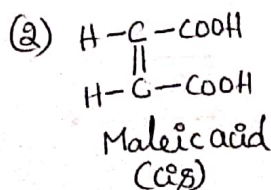 (2) H-C-COOH
||
H-C-COOH
Maleic acid
(cis)